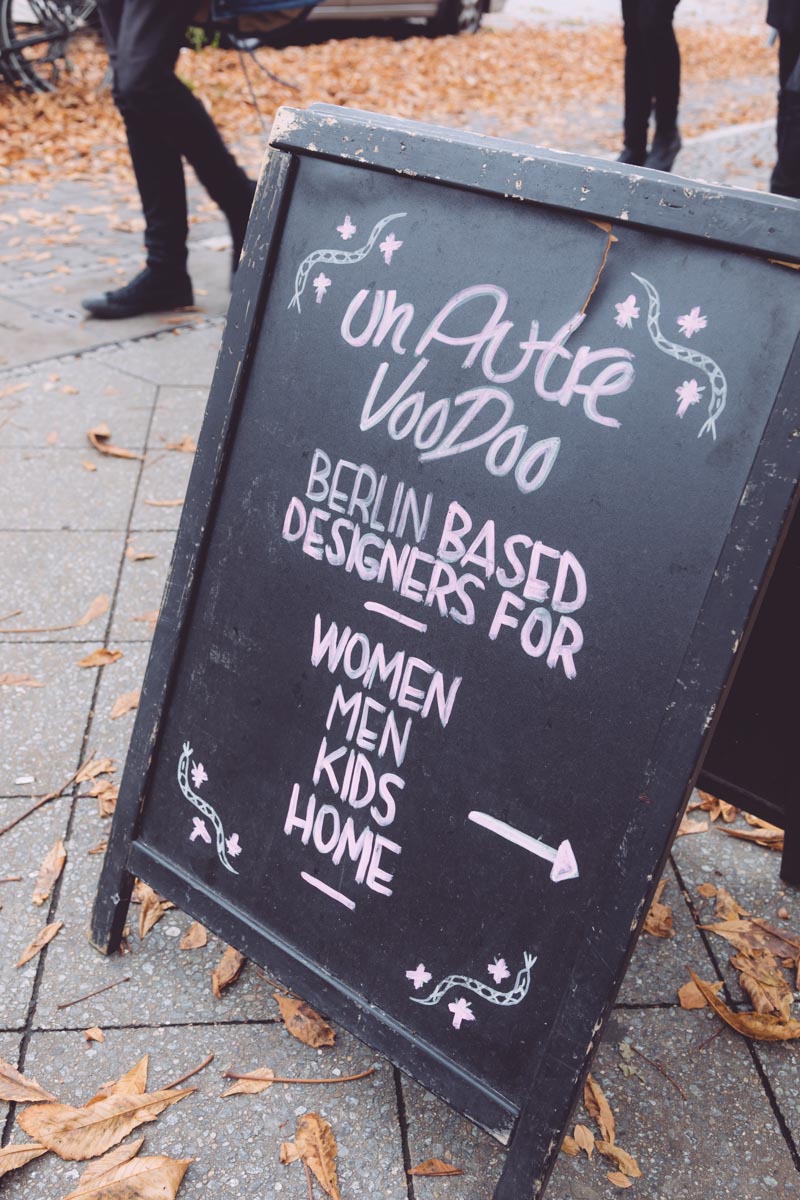 un Autre
VooDoo
BERLIN BASED
DESIGNERS FOR
WOMEN
MEN
KIDS
HOME